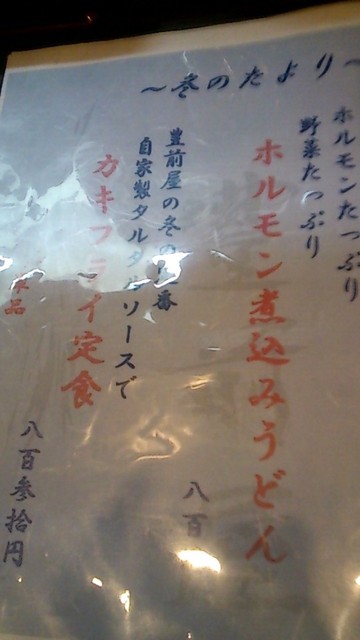 ～冬のたより～
ホルモンたっぷり
野菜たっぷり
ホルモン煮込みうどん
八百
豊前屋の冬の番
自家製タルタルソースで
カキフライ定食
八百参拾円
品